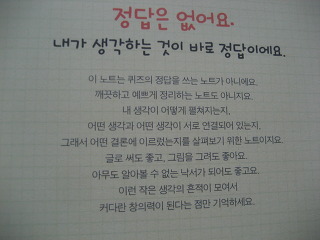 정답은 없어요.
내가 생각하는 것이 바로 정답이에요.
이 노트는 퀴즈의 정답을 쓰는 노트가 아니에요.
깨끗하고 예쁘게 정리하는 노트도 아니지요.
내 생각이 어떻게 펼쳐지는지,
어떤 생각과 어떤 생각이 서로 연결되어 있는지,
그래서 어떤 결론에 이르렀는지를 살펴보기 위한 노트이지요.
글로 써도 좋고, 그림을 그려도 좋아요.
아무도 알아볼 수 없는 낙서가 되어도 좋고요.
이런 작은 생각의 흔적이 모여서
커다란 창의력이 된다는 점만 기억하세요.